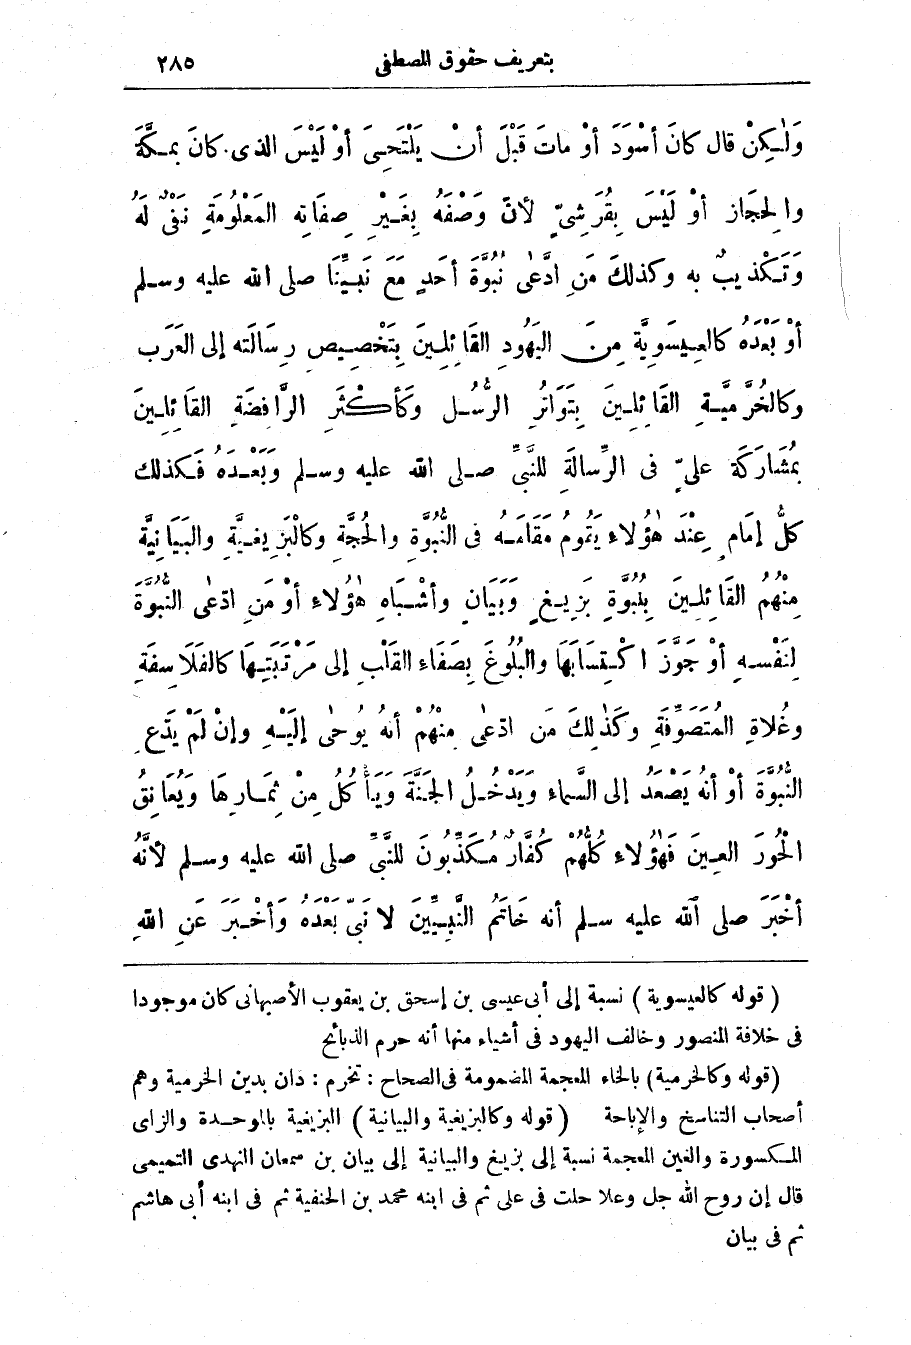 بتعريف حقوق المصطفى ٢٨٥
وَلٰكِنْ قال كانَ أسْوَدَ أوْ ماتَ قَبْلَ أنْ يَلْتَحِىَ أوْ لَيْسَ الذى كانَ بمكَّةَ
والحِجَازِ أوْ لَيْسَ بِقُرَشِىٍّ لأنّ وَصْفَهُ بِغَيْرِ صِفَاتِه المَعْلُومَةِ نَفْىٌ لَهُ
وَتَكْذِيبٌ به وكذلكَ مَنِ ادَّعٰى نُبُوَّةَ أحَدٍ مَعَ نَبِيِّنَا صلى الله عليه وسلم
أوْ بَعْدَهُ كالعِيسَوِيَّةِ مِنَ اليَهُودِ القَائِلِينَ بِتَخْصِيصِ رِسَالَتِه إلى العَرَبِ
وكالخُرَّمِيَّةِ القَائِلِينَ بِتَوَاتُرِ الرُّسُلِ وكَأكْثَرِ الرَّافِضَةِ القَائِلِينَ
بِمُشَارَكَةِ علىٍّ فى الرِّسالَةِ للنَّبِىِّ صلى الله عليه وسلم وَبَعْدَهُ فكذلك
كلُّ إمَامٍ عِنْدَ هٰؤُلاءِ يَقُومُ مَقَامَهُ فى النُّبُوَّةِ والحُجَّةِ وكالْبَزِيغِيَّةِ والبَيَانِيَّةِ
مِنْهُمُ القَائِلِينَ بِنُبُوَّةِ بَزِيغٍ وَبَيَانٍ وأشْبَاهِ هٰؤُلاءِ أوْ مَنِ ادّعٰى النُّبُوَّةَ
لِنَفْسِهِ أوْ جَوَّزَ اكْتِسَابَهَا والْبُلُوغَ بِصَفَاءِ القَلْبِ إلى مَرْتَبَتِهَا كالفَلَاسِفَةِ
وغُلَاةِ المُتَصَوِّفَةِ وكَذٰلِكَ مَن ادّعٰى مِنْهُمْ أنهُ يُوحٰى إلَيْهِ وإنْ لَمْ يَدّعِ
النُّبُوَّةَ أوْ أنهُ يَصْعَدُ إلى السَّماءِ وَيَدْخُلُ الجَنَّةَ وَيَأْكُلُ مِنْ ثِمَارِهَا وَيُعَانِقُ
الحُورَ العِينَ فَهٰؤُلاءِ كُلُّهُمْ كُفَّارٌ مُكَذِّبُونَ للنَّبِىِّ صلى الله عليه وسلم لأنَّهُ
أخْبَرَ صلى الله عليه سلم أنه خَاتَمُ النَّبِيِّينَ لا نَبِىَّ بَعْدَهُ وَأخْبَرَ عَنِ اللهِ
( قوله كالعيسوية ) نسبة إلى أبى عيسى بن إسحق بن يعقوب الأصبهانى كان موجودا
فى خلافة المنصور وخالف اليهود فى أشياء منها أنه حرم الذبائح
(قوله وكالخرمية) بالخاء المعجمة المضمومة فى الصحاح : تخرم : دان بدين الخرمية وهم
أصحاب التناسخ والإباحة ( قوله وكالبزيغية والبيانية ) البزيغية بالموحدة والزاى
المكسورة والغين المعجمة نسبة إلى بزيغ والبيانية إلى بيان بن سمعان النهدى التميمى
قال إن روح الله جل وعلا حلت فى على ثم فى ابنه محمد بن الحنفية ثم فى ابنه أبى هاشم
ثم فى بيان